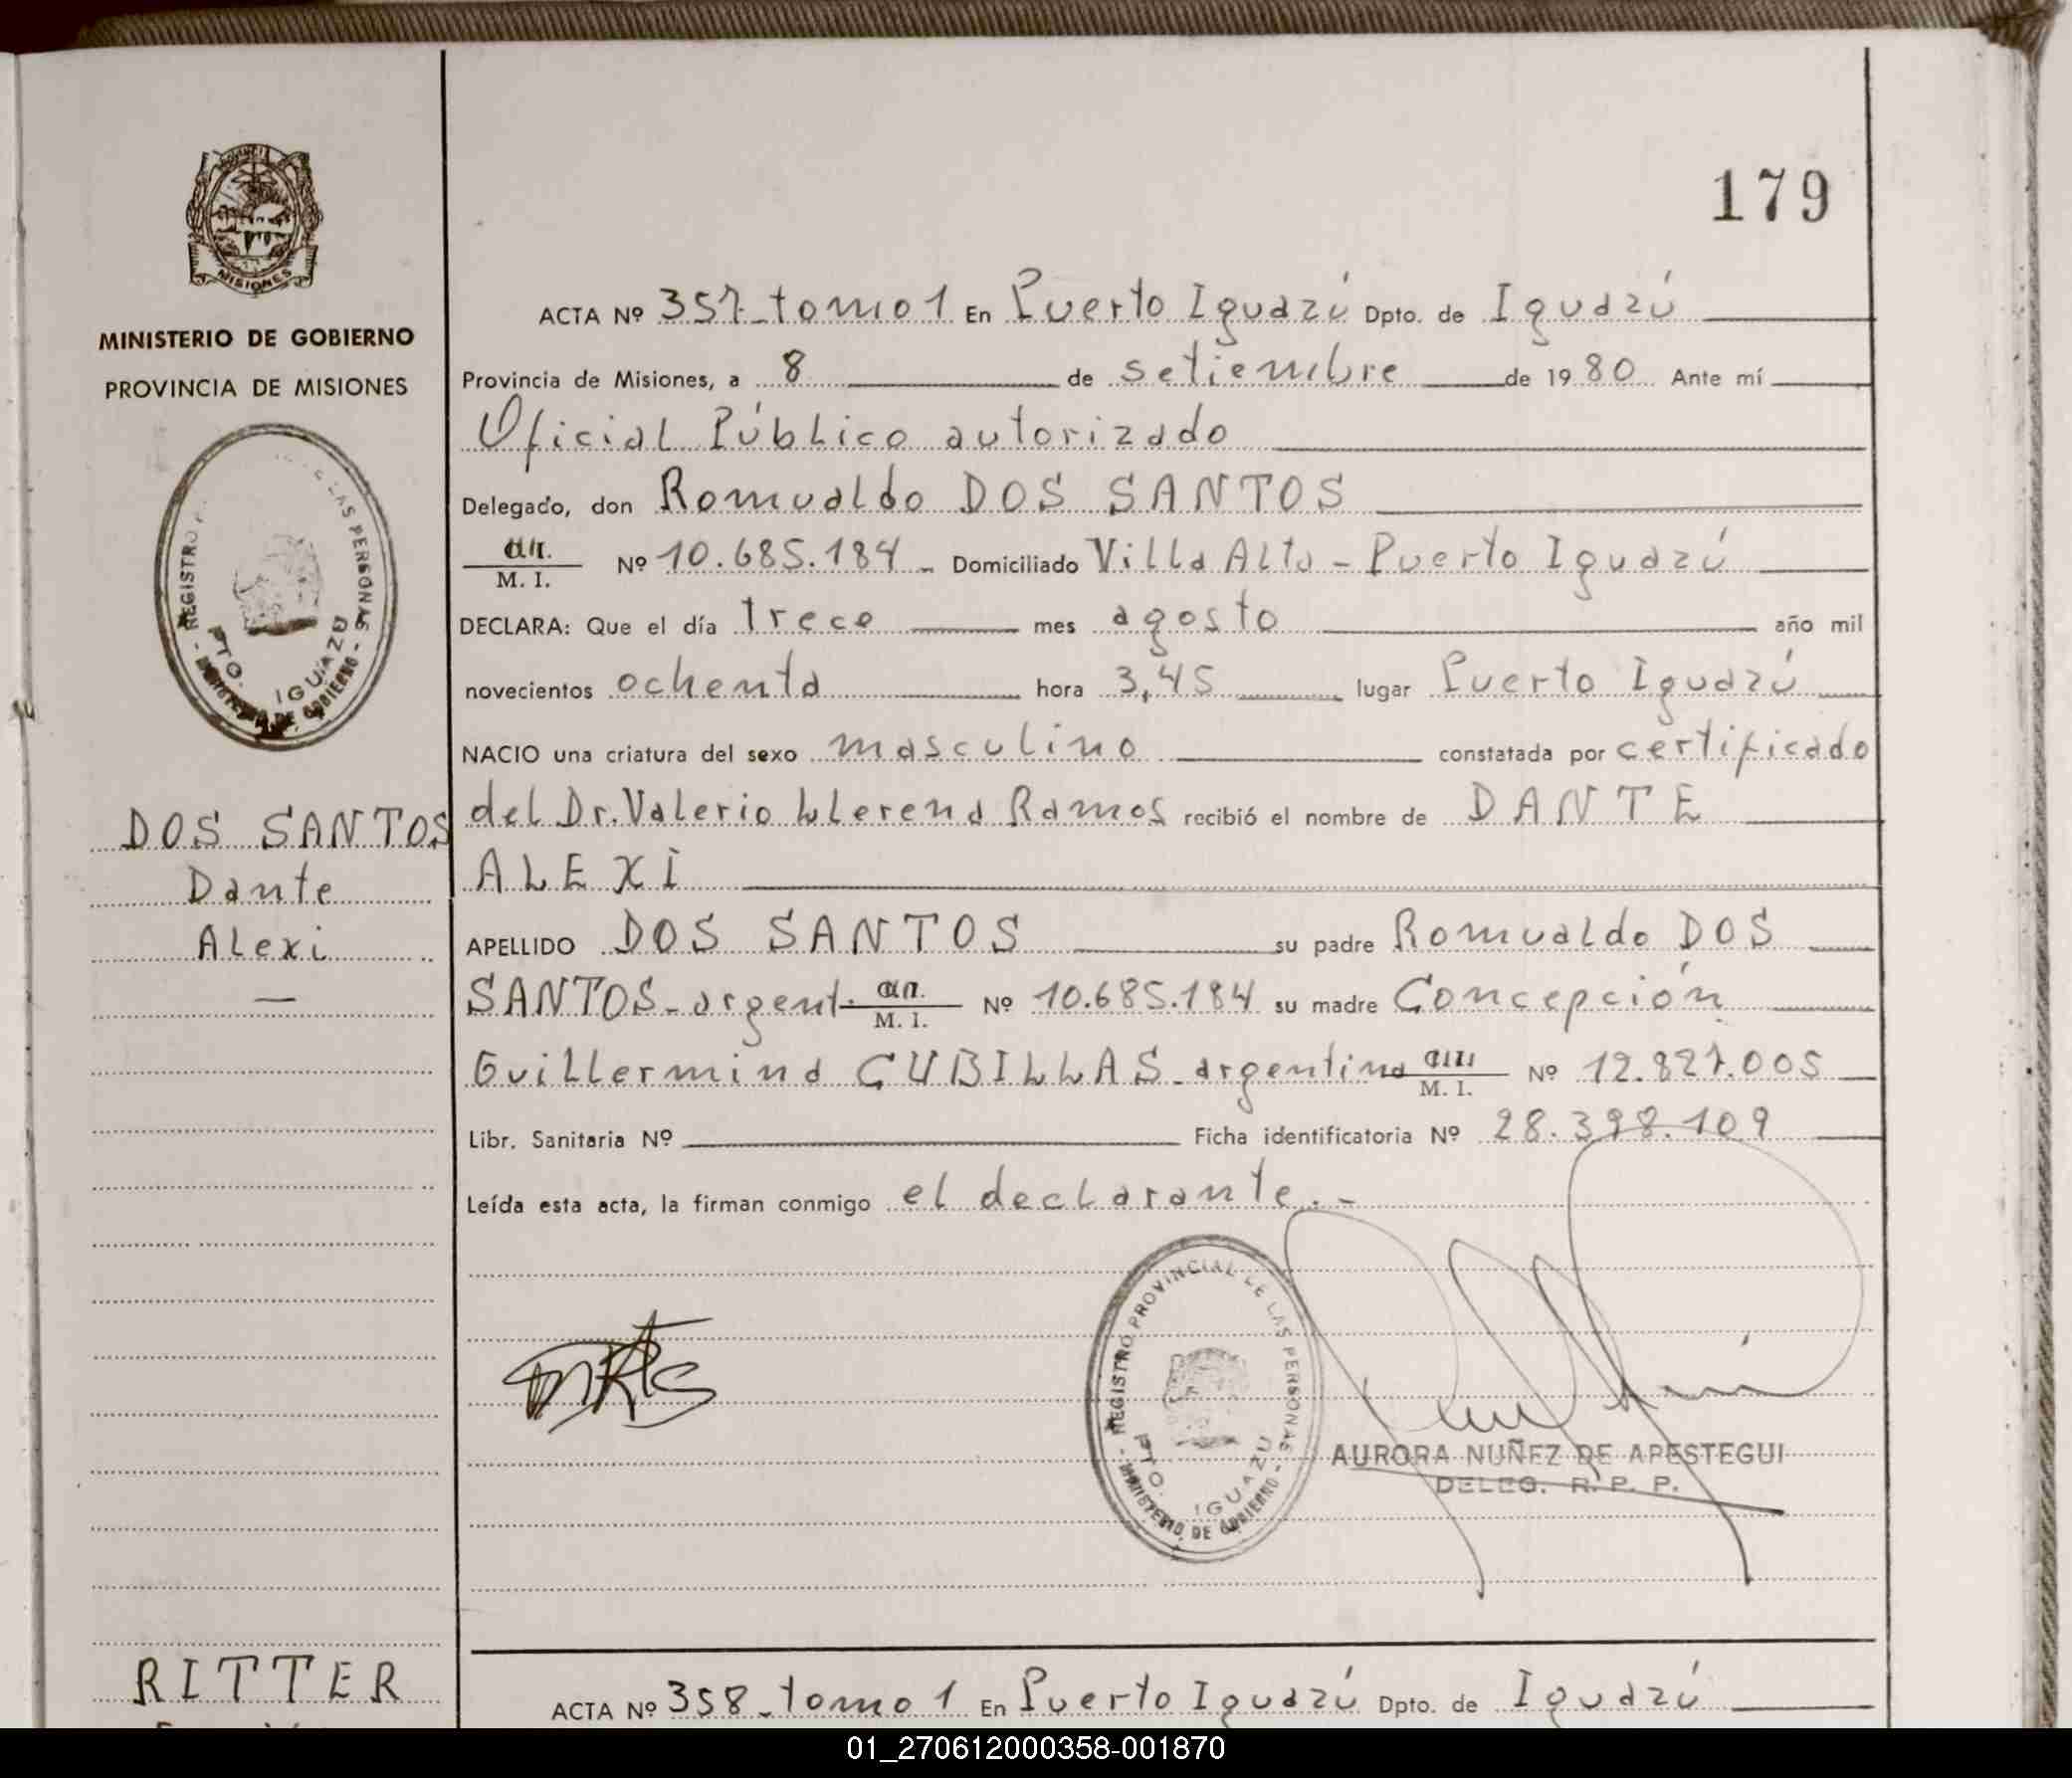 179
MISIONES
MINISTERIO DE GOBIERNO
PROVINCIA DE MISIONES
REGISTRO LAS PERSONAS
PTO. IGUAZU
MINISTERIO DE GOBIERNO
DOS SANTOS
Dante
Alexi
—
ACTA Nº 357-tomo 1 En Puerto Iguazú Dpto. de Iguazú
Provincia de Misiones, a 8 de setiembre de 1980 Ante mí
Oficial Público autorizado
Delegado, don Romualdo DOS SANTOS
M. I. Nº 10.685.184 - Domiciliado Villa Alta - Puerto Iguazú
DECLARA: Que el día trece mes agosto año mil
novecientos ochenta hora 3,45 lugar Puerto Iguazú
NACIO una criatura del sexo masculino constatada por certificado
del Dr. Valerio Llerena Ramos recibió el nombre de DANTE
ALEXI
APELLIDO DOS SANTOS su padre Romualdo DOS
SANTOS - argent. M. I. Nº 10.685.184 su madre Concepción
Guillermina CUBILLAS - argentina M. I. Nº 12.827.005
Libr. Sanitaria Nº Ficha identificatoria Nº 28.398.109
Leída esta acta, la firman conmigo el declarante. -
REGISTRO PROVINCIAL DE LAS PERSONAS
PTO. IGUAZU
MINISTERIO DE GOBIERNO
AURORA NUÑEZ DE APESTEGUI
DELEG. R. P. P.
RITTER
ACTA Nº 358 - tomo 1 En Puerto Iguazú Dpto. de Iguazú
01_270612000358-001870